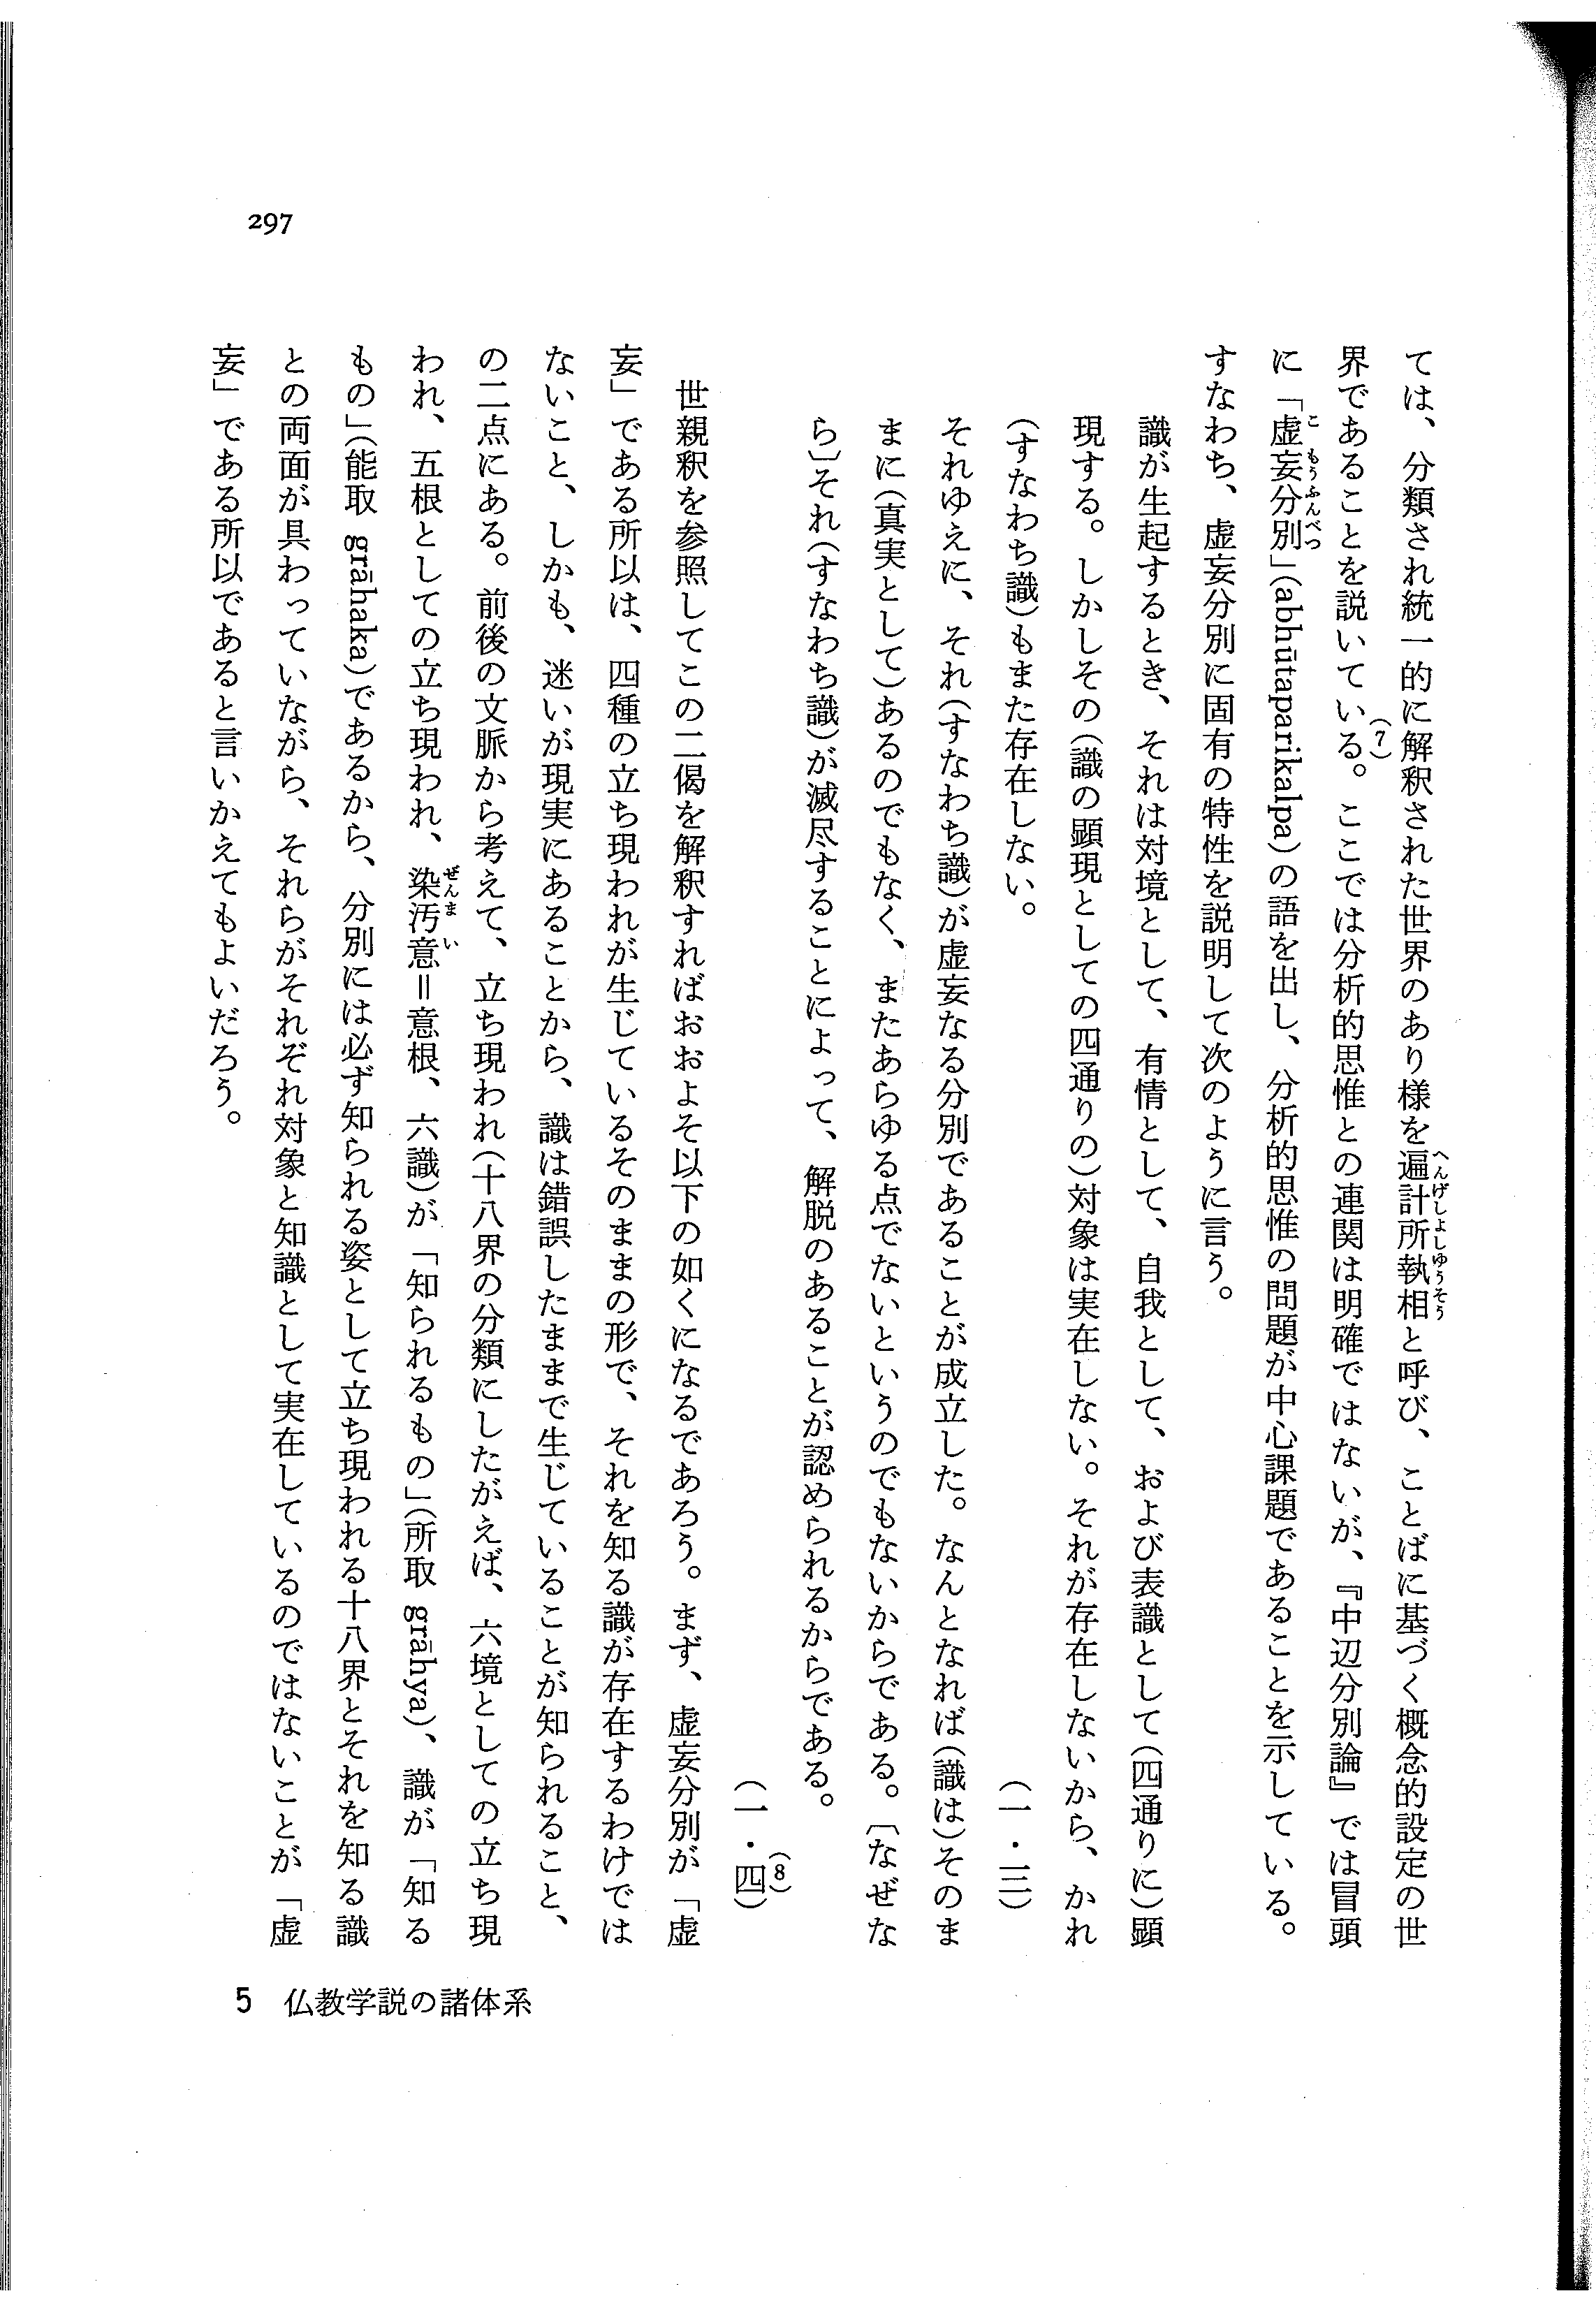 297
ては、分類され統一的に解釈された世界のあり様を遍計所執相と呼び、ことばに基づく概念的設定の世
へんげしよしゆうそう
界であることを説いている。ここでは分析的思惟との連関は明確ではないが、『中辺分別論』では冒頭
(7)
に「虚妄分別」(abhūtaparikalpa)の語を出し、分析的思惟の問題が中心課題であることを示している。
こもうふんべつ
すなわち、虚妄分別に固有の特性を説明して次のように言う。
識が生起するとき、それは対境として、有情として、自我として、および表識として(四通りに)顕
現する。しかしその(識の顕現としての四通りの)対象は実在しない。それが存在しないから、かれ
(すなわち識)もまた存在しない。 (一・三)
それゆえに、それ(すなわち識)が虚妄なる分別であることが成立した。なんとなれば(識は)そのま
まに(真実として)あるのでもなく、またあらゆる点でないというのでもないからである。〔なぜな
ら〕それ(すなわち識)が滅尽することによって、解脱のあることが認められるからである。
(8)
(一・四)
世親釈を参照してこの二偈を解釈すればおおよそ以下の如くになるであろう。まず、虚妄分別が「虚
妄」である所以は、四種の立ち現われが生じているそのままの形で、それを知る識が存在するわけでは
ないこと、しかも、迷いが現実にあることから、識は錯誤したままで生じていることが知られること、
の二点にある。前後の文脈から考えて、立ち現われ(十八界の分類にしたがえば、六境としての立ち現
われ、五根としての立ち現われ、染汚意=意根、六識)が「知られるもの」(所取 grāhya)、識が「知る
ぜんまい
もの」(能取 grāhaka)であるから、分別には必ず知られる姿として立ち現われる十八界とそれを知る識
との両面が具わっていながら、それらがそれぞれ対象と知識として実在しているのではないことが「虚
妄」である所以であると言いかえてもよいだろう。
5 仏教学説の諸体系